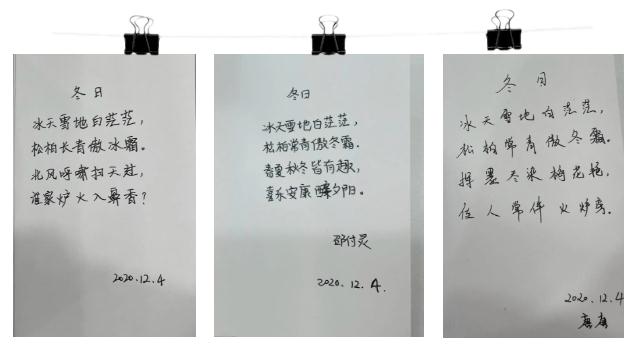 冬日
冰天雪地白茫茫，
松柏长青傲冰霜。
北风呼啸扫天赴，
谁家炉火入鼻香？
2020.12.4
冬日
冰天雪地白茫茫，
松柏常青傲冬霜。
春夏秋冬皆有趣，
喜乐安康醉夕阳。
邵付灵
2020.12.4.
冬日
冰天雪地白茫茫，
松柏常青傲冬霜。
挥墨尽染梅花艳，
佳人常伴火炉旁。
2020.12.4
唐唐